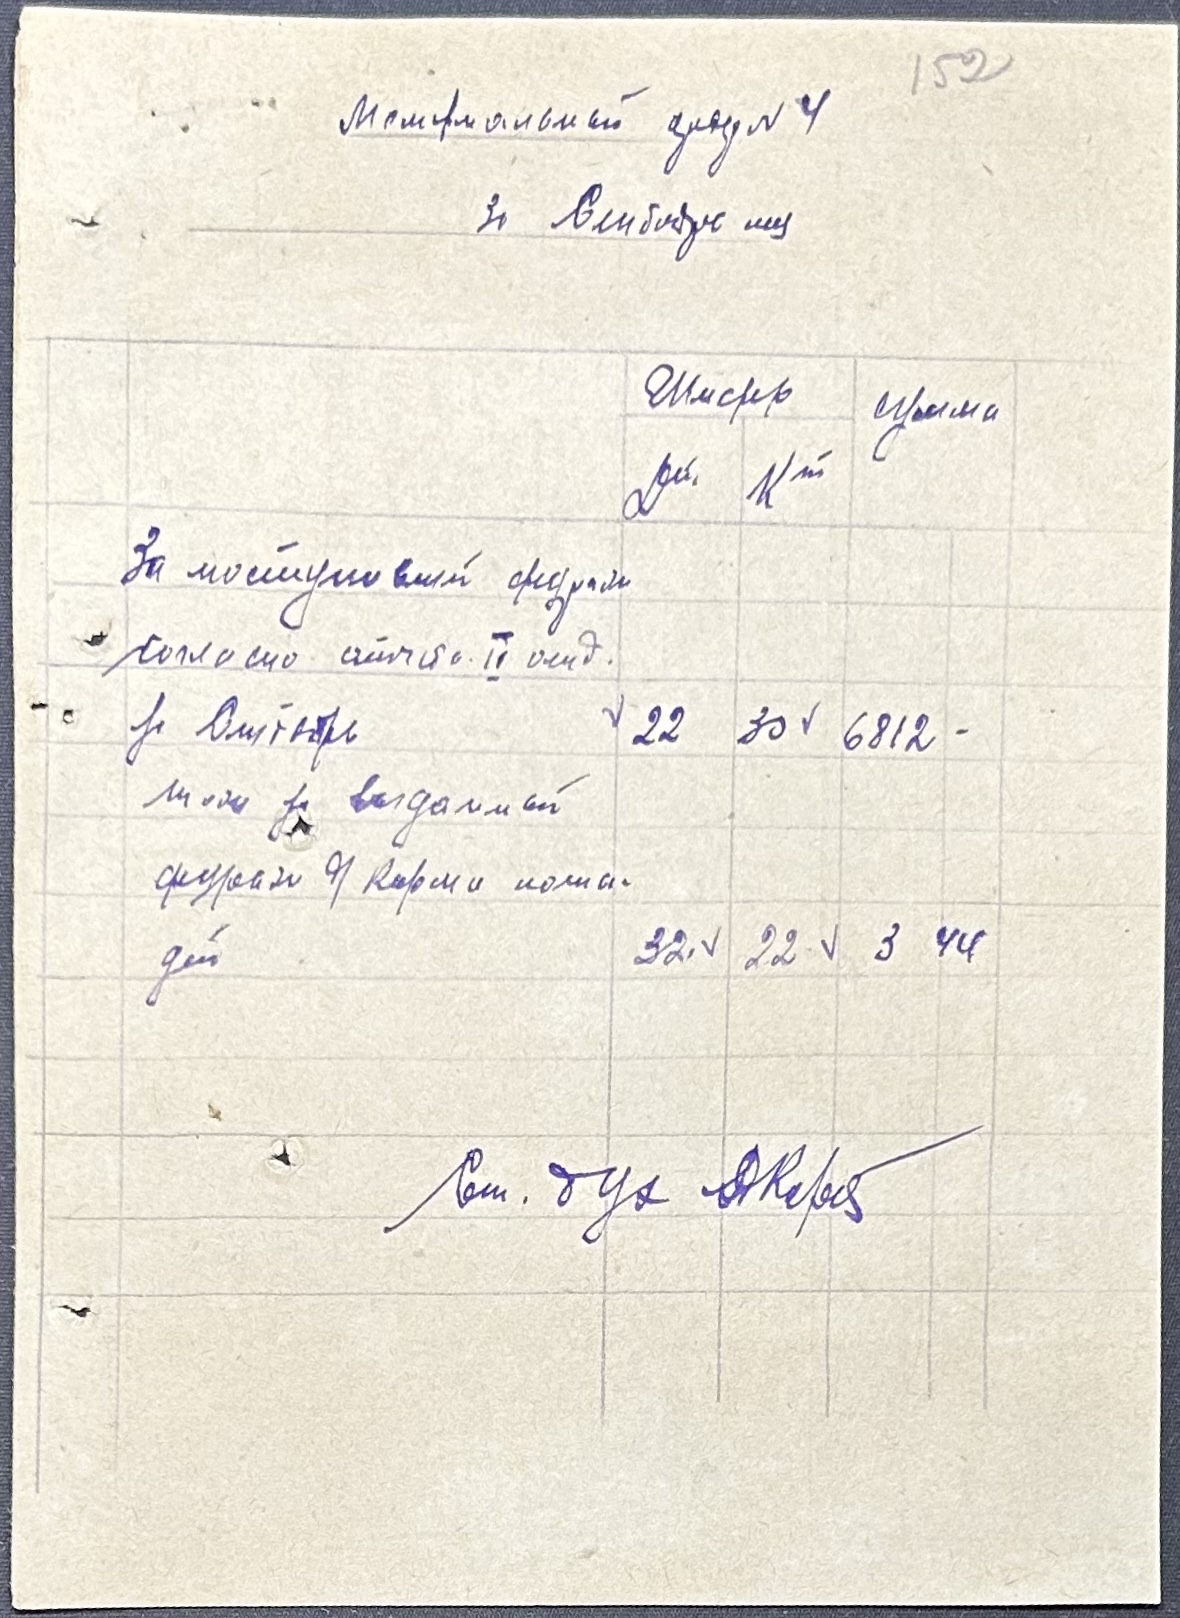 152
Мемориальный ордер № 4
За Октябрь м-ц
Шифр Сумма
Дт. Кт
За поступивший фураж
согласно отчета II отд.
за Октябрь 22 30 6812 -
тоже за выданный
фураж д/ корма лоша-
дей 32. 22. 3 44
Ст. бух